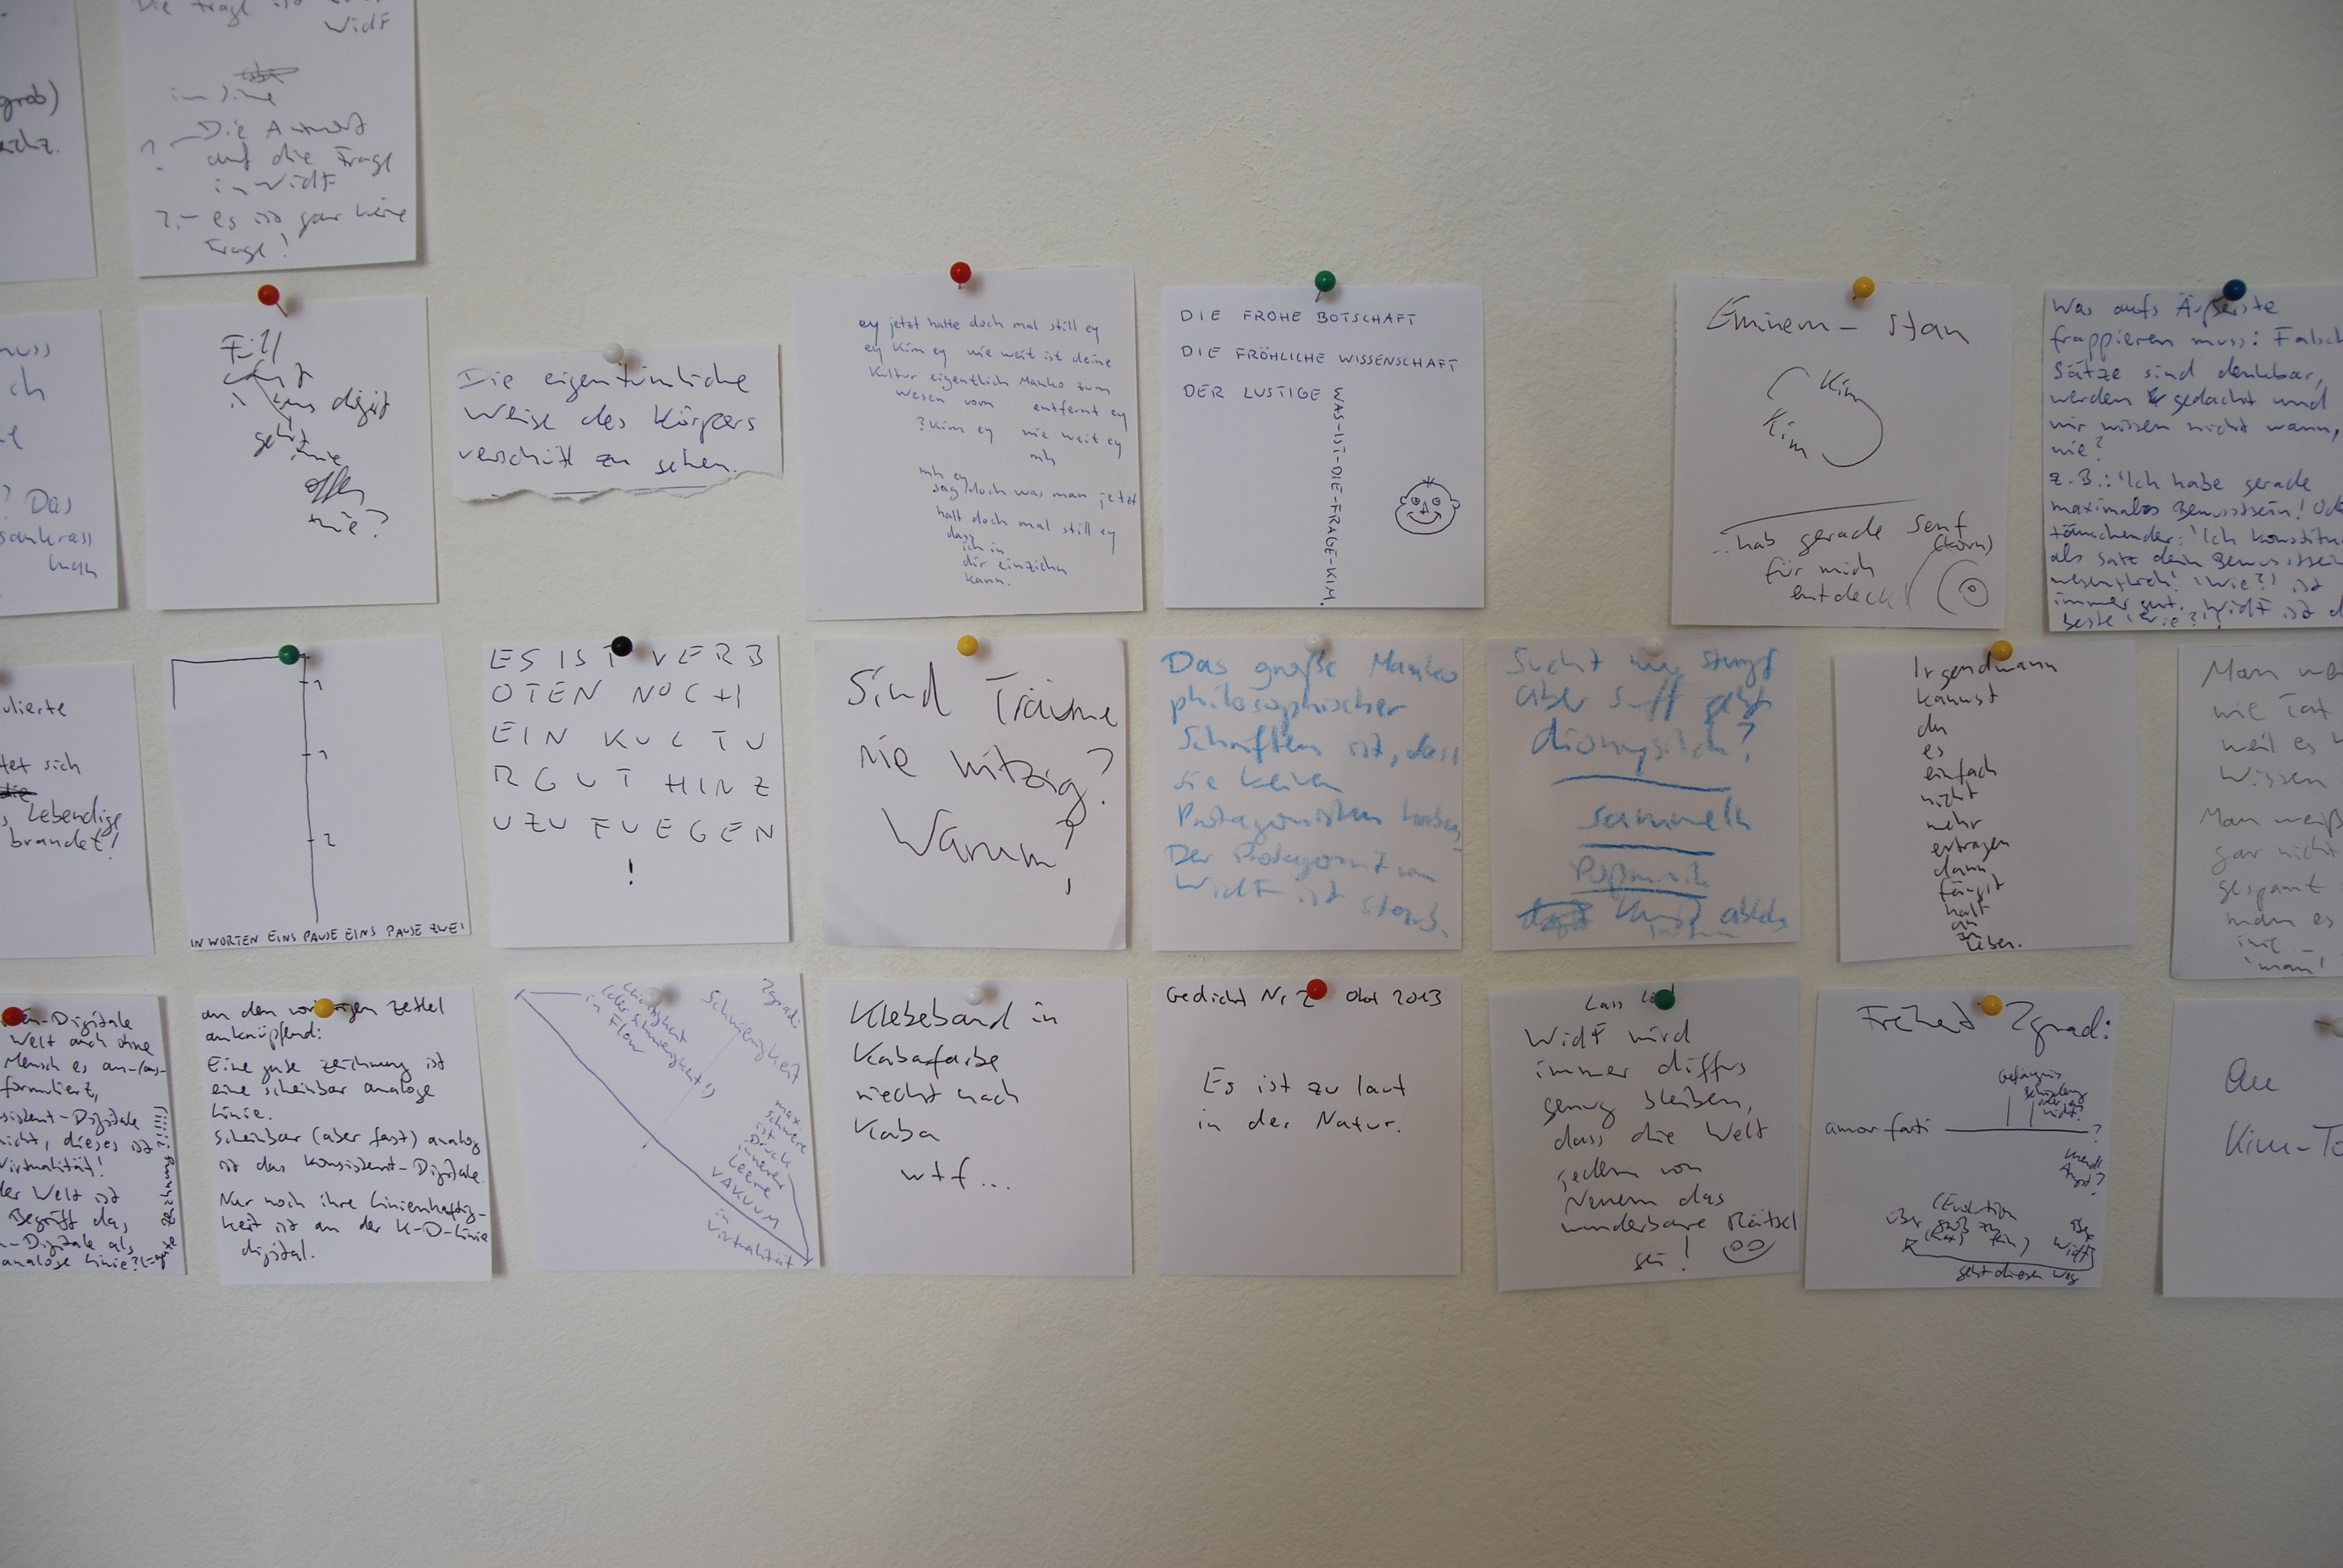 WidF
Die Antwort
auf die Frage
in WidF
es ist gar keine
Frage!
grob)
muss
ch
? Das
man
Die eigentümliche
Weise des Körpers
verschilt zu sehen.
ey jetzt halte doch mal still ey
ey Kim ey wie weit ist deine
Kultur eigentlich Manko zum
Wesen vom entfernt ey
? Kim ey wie weit ey
mh
mh ey
sag doch was man jetzt
halt doch mal still ey
dass
ich in
dir einziehn
kann.
DIE FROHE BOTSCHAFT
DIE FRÖHLICHE WISSENSCHAFT
DER LUSTIGE
WAS-IST-DIE-FRAGE-KIM.
Eminem - Stan
Kim
Kim
..hab gerade Senf
(korn)
für mich
entdeckt
Was aufs Äußerste
frappieren muss: Falsche
Sätze sind denkbar,
werden gedacht und
wir wissen nicht wann,
wie?
z.B.: 'Ich habe gerade
maximales Bewusstsein! Ode
täuschender: 'Ich konstitu
als Satz dein Bewusstsein
wesentlich! 'Wie?' ist
immer gut. WidF ist d
beste 'Wie?'!
ulierte
tet sich
die
s Lebendige
brandet!
1
1
2
IN WORTEN EINS PAUSE EINS PAUSE ZWEI
ES IST VERB
OTEN NOCH
EIN KULTU
RGUT HINZ
UZUFUEGEN
!
Sind Träume
nie witzig?
Warum?
Das große Manko
philosophischer
Schriften ist, dass
sie keinen
Protagonisten haben,
Der Protagonist von
WidF ist
Sucht nur stumpf
aber Suff geht
dionysisch?
sammeln
Kunst
Irgendwann
kannst
du
es
einfach
nicht
mehr
ertragen
dann
fängst
halt
an
zu
üben.
Man
wie
weil es
Wissen
Man weiß
gar nicht
gespannt
man es
'man'
-Digitale
Welt auch ohne
Mensch es an-/aus-
formuliert,
sistent-Digitale
nicht, dieses ist
Virtualität!
der Welt ist
Begriff da,
-Digitale als
analoge Linie?
gute Zeichnung
an den vorigen Zettel
anknüpfend:
Eine gute Zeichnung ist
eine scheinbar analoge
Linie.
Scheinbar (aber fast) analog
ist das Konsistent-Digitale.
Nur noch ihre Linienhaftig-
keit ist an der K-D-Linie
digital.
Leichtigkeit
(der Schwierigkeit!)
in Flow
Schwierigkeit
2grad:
max
schwere
ist
Druck
innerer
Leere
VAKUUM
in
Virtualität
Klebeband in
Kabafarbe
riecht nach
Kaba
wtf...
Gedicht Nr 2 Okt 2013
Es ist zu laut
in der Natur.
WidF wird
immer diffus
genug bleiben,
dass die Welt
jedem von
Neuem das
wunderbare Rätsel
sei!
Freiheit 2grad:
Gefängnis
oder
nicht?
amor fati
?
(Evolution
über groß zu
klein)
über
WidF
geht diesen Weg
Au
Kim-To